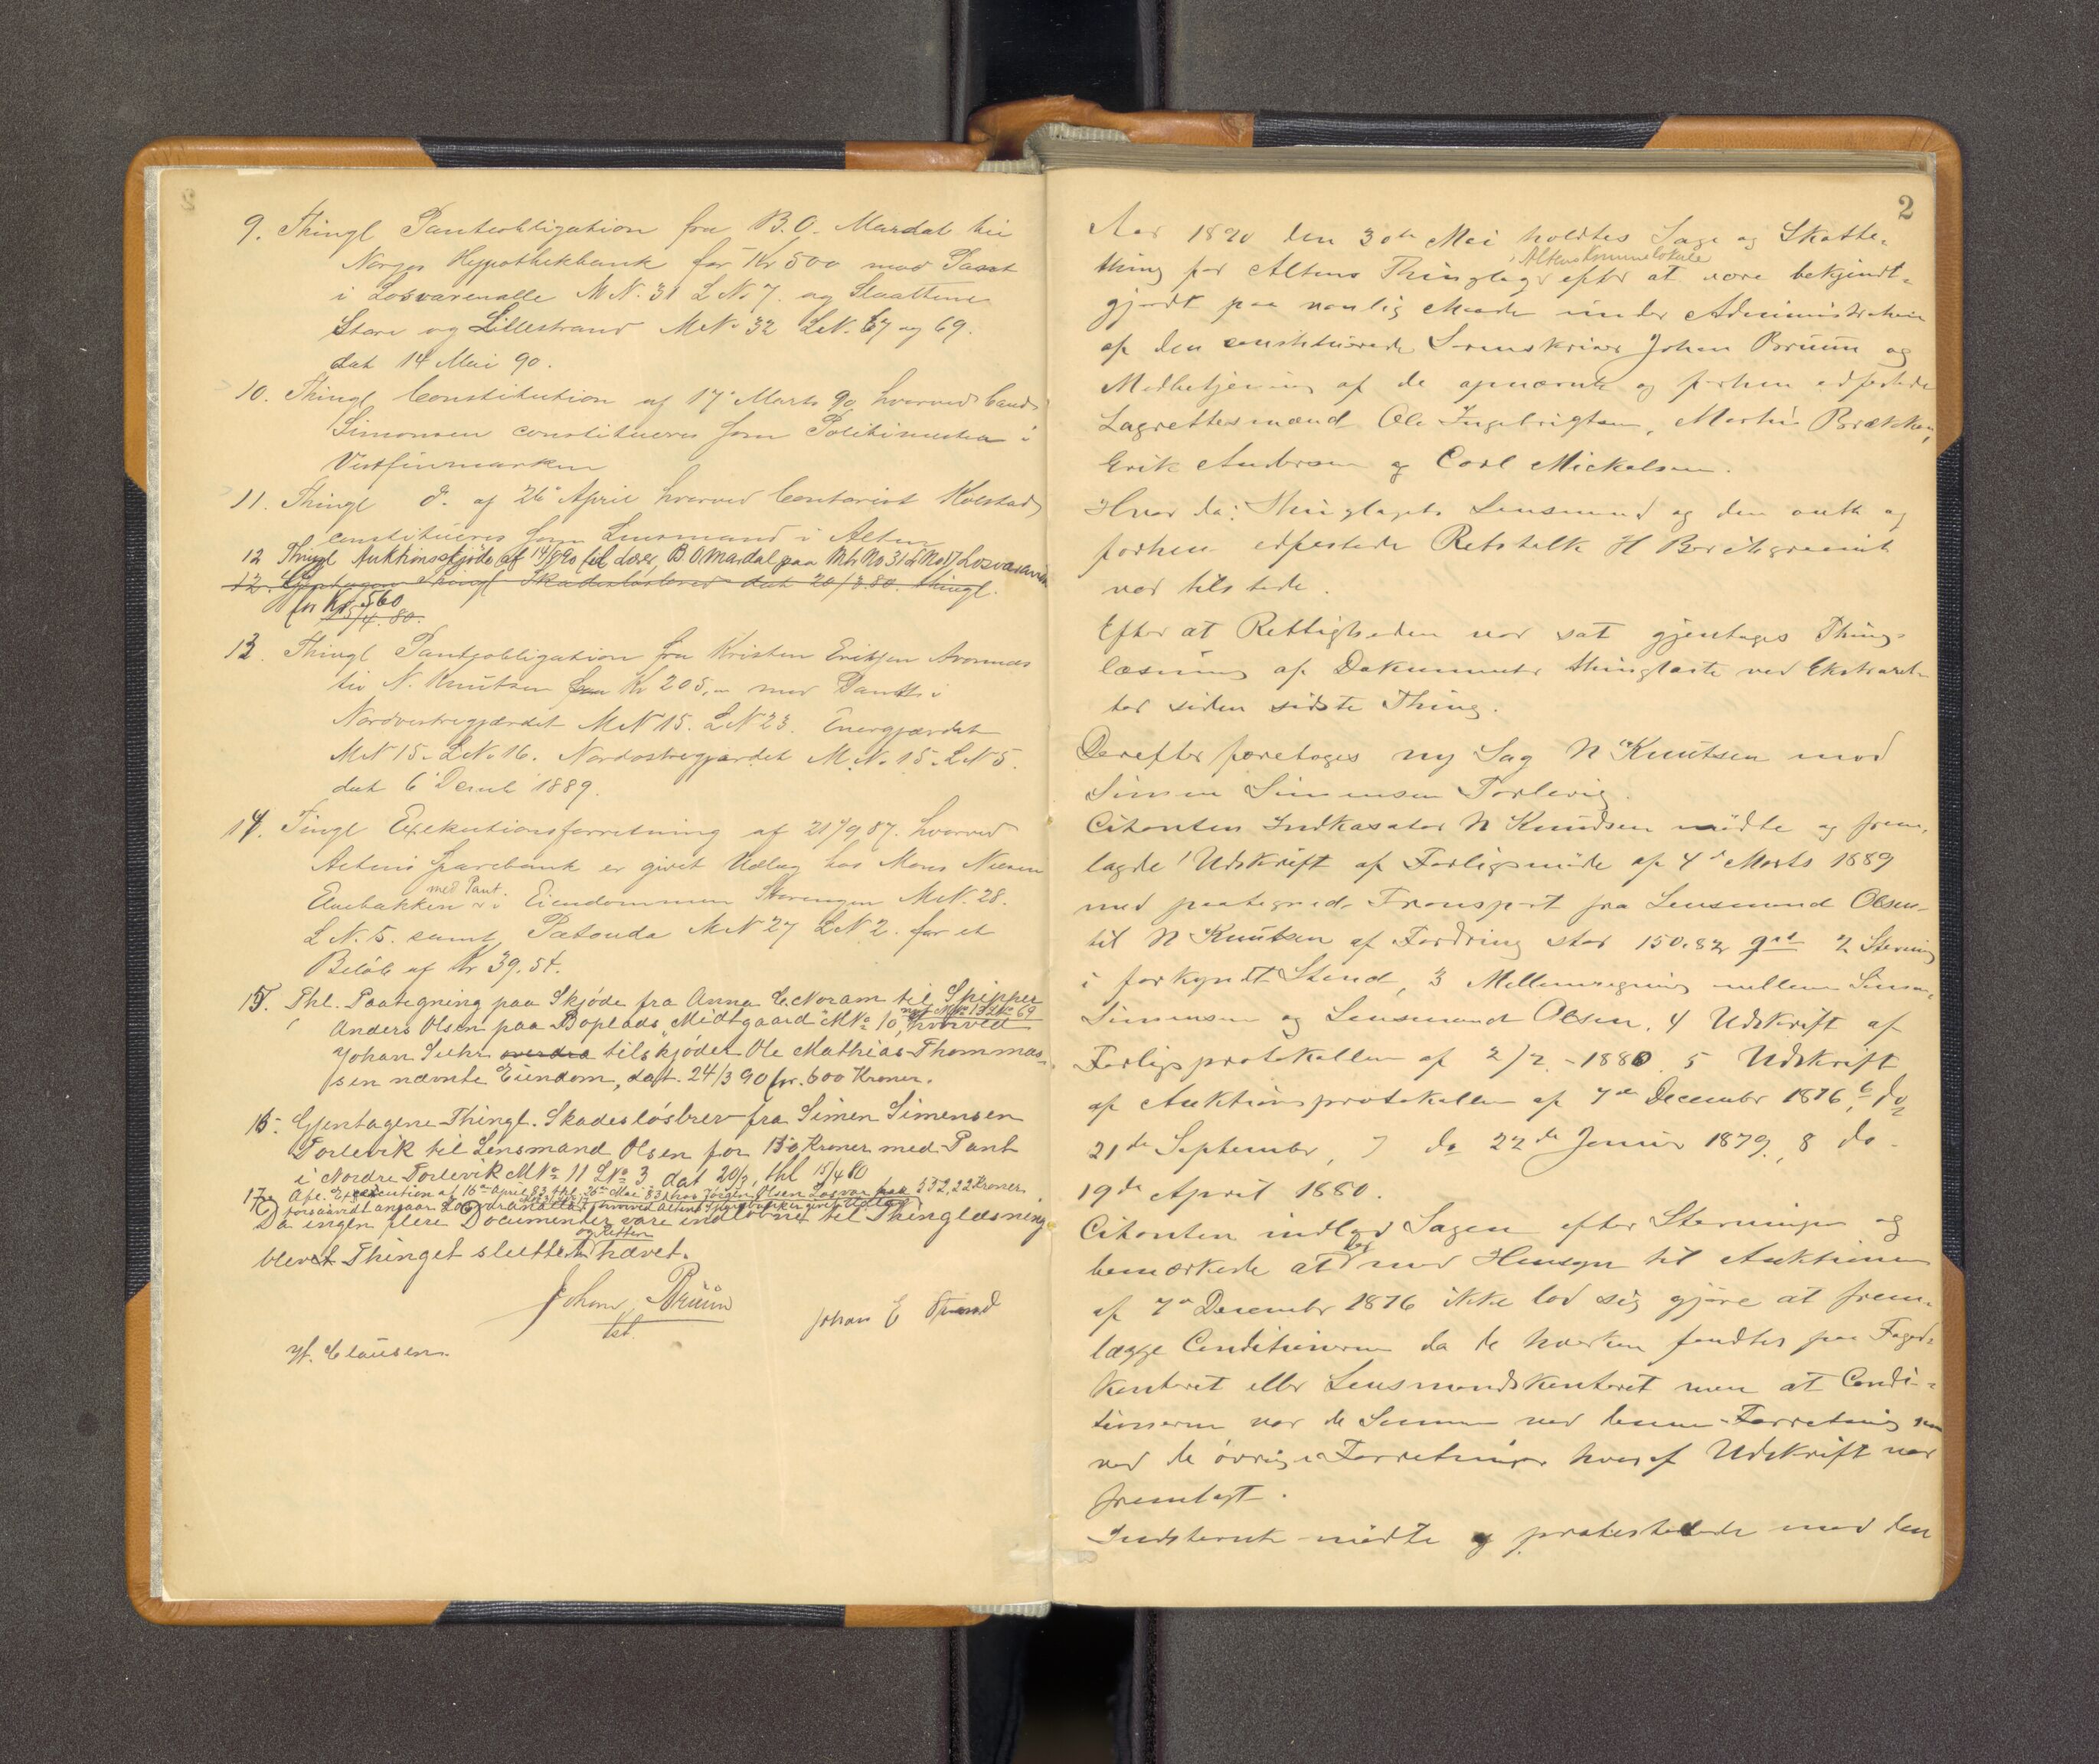 9. Thingl Panteobligation fra B.O. Mardal til
Norges Hypothekbank for Kr 500 mod Pant
i Losvarenalle M N. 31 L No 7. og Slaattene
Store og Lillestrand M No 32 L N. 67 og 69.
dat 14 Mai 90.
10. Thingl Constitution af 17de Marts 90 hvorved Cand
Simonsen constitueres som Politimester i
Vestfinmarken
11. Thingl do. af 26de April hvorved Contorist Kolstad
constitueres som Lensmand i Alten
12 Thingl Auktionsskjöde af 14/5 90 til B O Mardal paa Mt No 31 L No 7 Losvaranalla
12. Gjentagen Thingl Skadeslösbrev dat 20/3 80. thingl.
for Kr. 560
15/4. 80.
13. Thingl Pantobligation fra Kristen Eriksen Aronnes
til N. Knutsen Kr 205,- med Pant i
Nordvestregjærdet M N 15. L N 23. Energjærdet
M N 15. L No 16. Nordostregjærdet M No 15. L N 5.
dat 6 Decmb 1889.
14. Tingl Exekutionsforretning af 21/9 87. hvorved
Altens Sparebank er givet Udlæg hos Mons Nilsen
med Pant.
Elvebakken i Eiendommen Storengen M N. 28.
L N. 5. samt M N 27 L N 2. for et
Belöb af Kr 39.54.
15. Thl. Paategning paa Skjöde fra Anna C. Noram til Skipper
nyt M No 13 L No 69
Anders Olsen paa Boplads "Midtgaard" M No 10, hvorved
Johan Suhr overdra tilskjöder Ole Mathias Thommas-
sen nævnte Eiendom, dat. 24/3 90 for 600 Kroner.
16. Gjentagene Thingl. Skadeslösbrev fra Simen Simensen
Torlevik til Lensmand Olsen for 150 Kroner med Pant
i Nordre Torlevik M No 11 L No 3, dat 20/3, thl 15/4 80
17. Afl. Execution af 16de April 83, thl. 26de Mai 83, hos Jörgen Olsen Losvar 532,22 Kroner
forsaavidt angaar Losvaranalla, hvorved Altens Sparebank er givet Udlæg
Da ingen flere Documenter vare indlöbne til Thinglæsning
og Retten
blev Thinget sluttet hævet.
Johan Bruun
kst.
Johan E Strand
H. Clausen.
2
Aar 1890 den 30te Mai holdtes Sage og Skatte-
i Altens Kommunelokale
thing for Altens Thinglag efter at være bekjendt-
gjordt paa vanlig Maade under Administration
af den constituerede Sorenskriver Johan Bruun og
Medbetjening af de opnævnte og forhen edfæstede
Lagrettesmænd Ole Ingebrigtsen, Martin Brækken,
Erik Andersen og Carl Mickelsen.
Hvor da: Thinglagets Lensmand og den auth og
forhen edfæstede Retstolk H
var tilstede.
Efter at Rettigheden var sat gjentages Thing-
læsning af Dokumenter thinglæste ved Ekstraret-
ter siden sidste Thing.
Derefter foretoges ny Sag N Knutsen mod
Simen Simensen Torlevig.
Citanten Indkasator N Knudsen mödte og frem-
lagde 1 Udskrift af Forligsmöde af 4de Marts 1889
med paategnede Transport fra Lensmand Olsen
til N Knutsen af Fordring stor 150.82 2 Stevning
i forkyndt Stand, 3 Mellemregning mellem Simen
Simensen og Lensmand Olsen. 4 Udskrift af
Forligsprotokollen af 2/2 - 1880 5 Udskrift
af Auktionsprotokollen af 7de December 1876, 6 do
21de September, 7 do 22de Januar 1879, 8 do
19de April 1880.
Citanten indlod Sagen efter Stevningen og
det
bemærkede at med Hensyn til Auktionen
af 7de December 1876 ikke lod sig gjöre at frem-
lægge Conditionerne da de hverken fandtes paa Foged-
kontoret eller Lensmandskontoret men at Condi-
tionerne var de Samme ved denne Forretning som
ved de övrige Forretninger hvoraf Udskrift var
fremlagt.
Indstevnte mödte og protesterede mod den